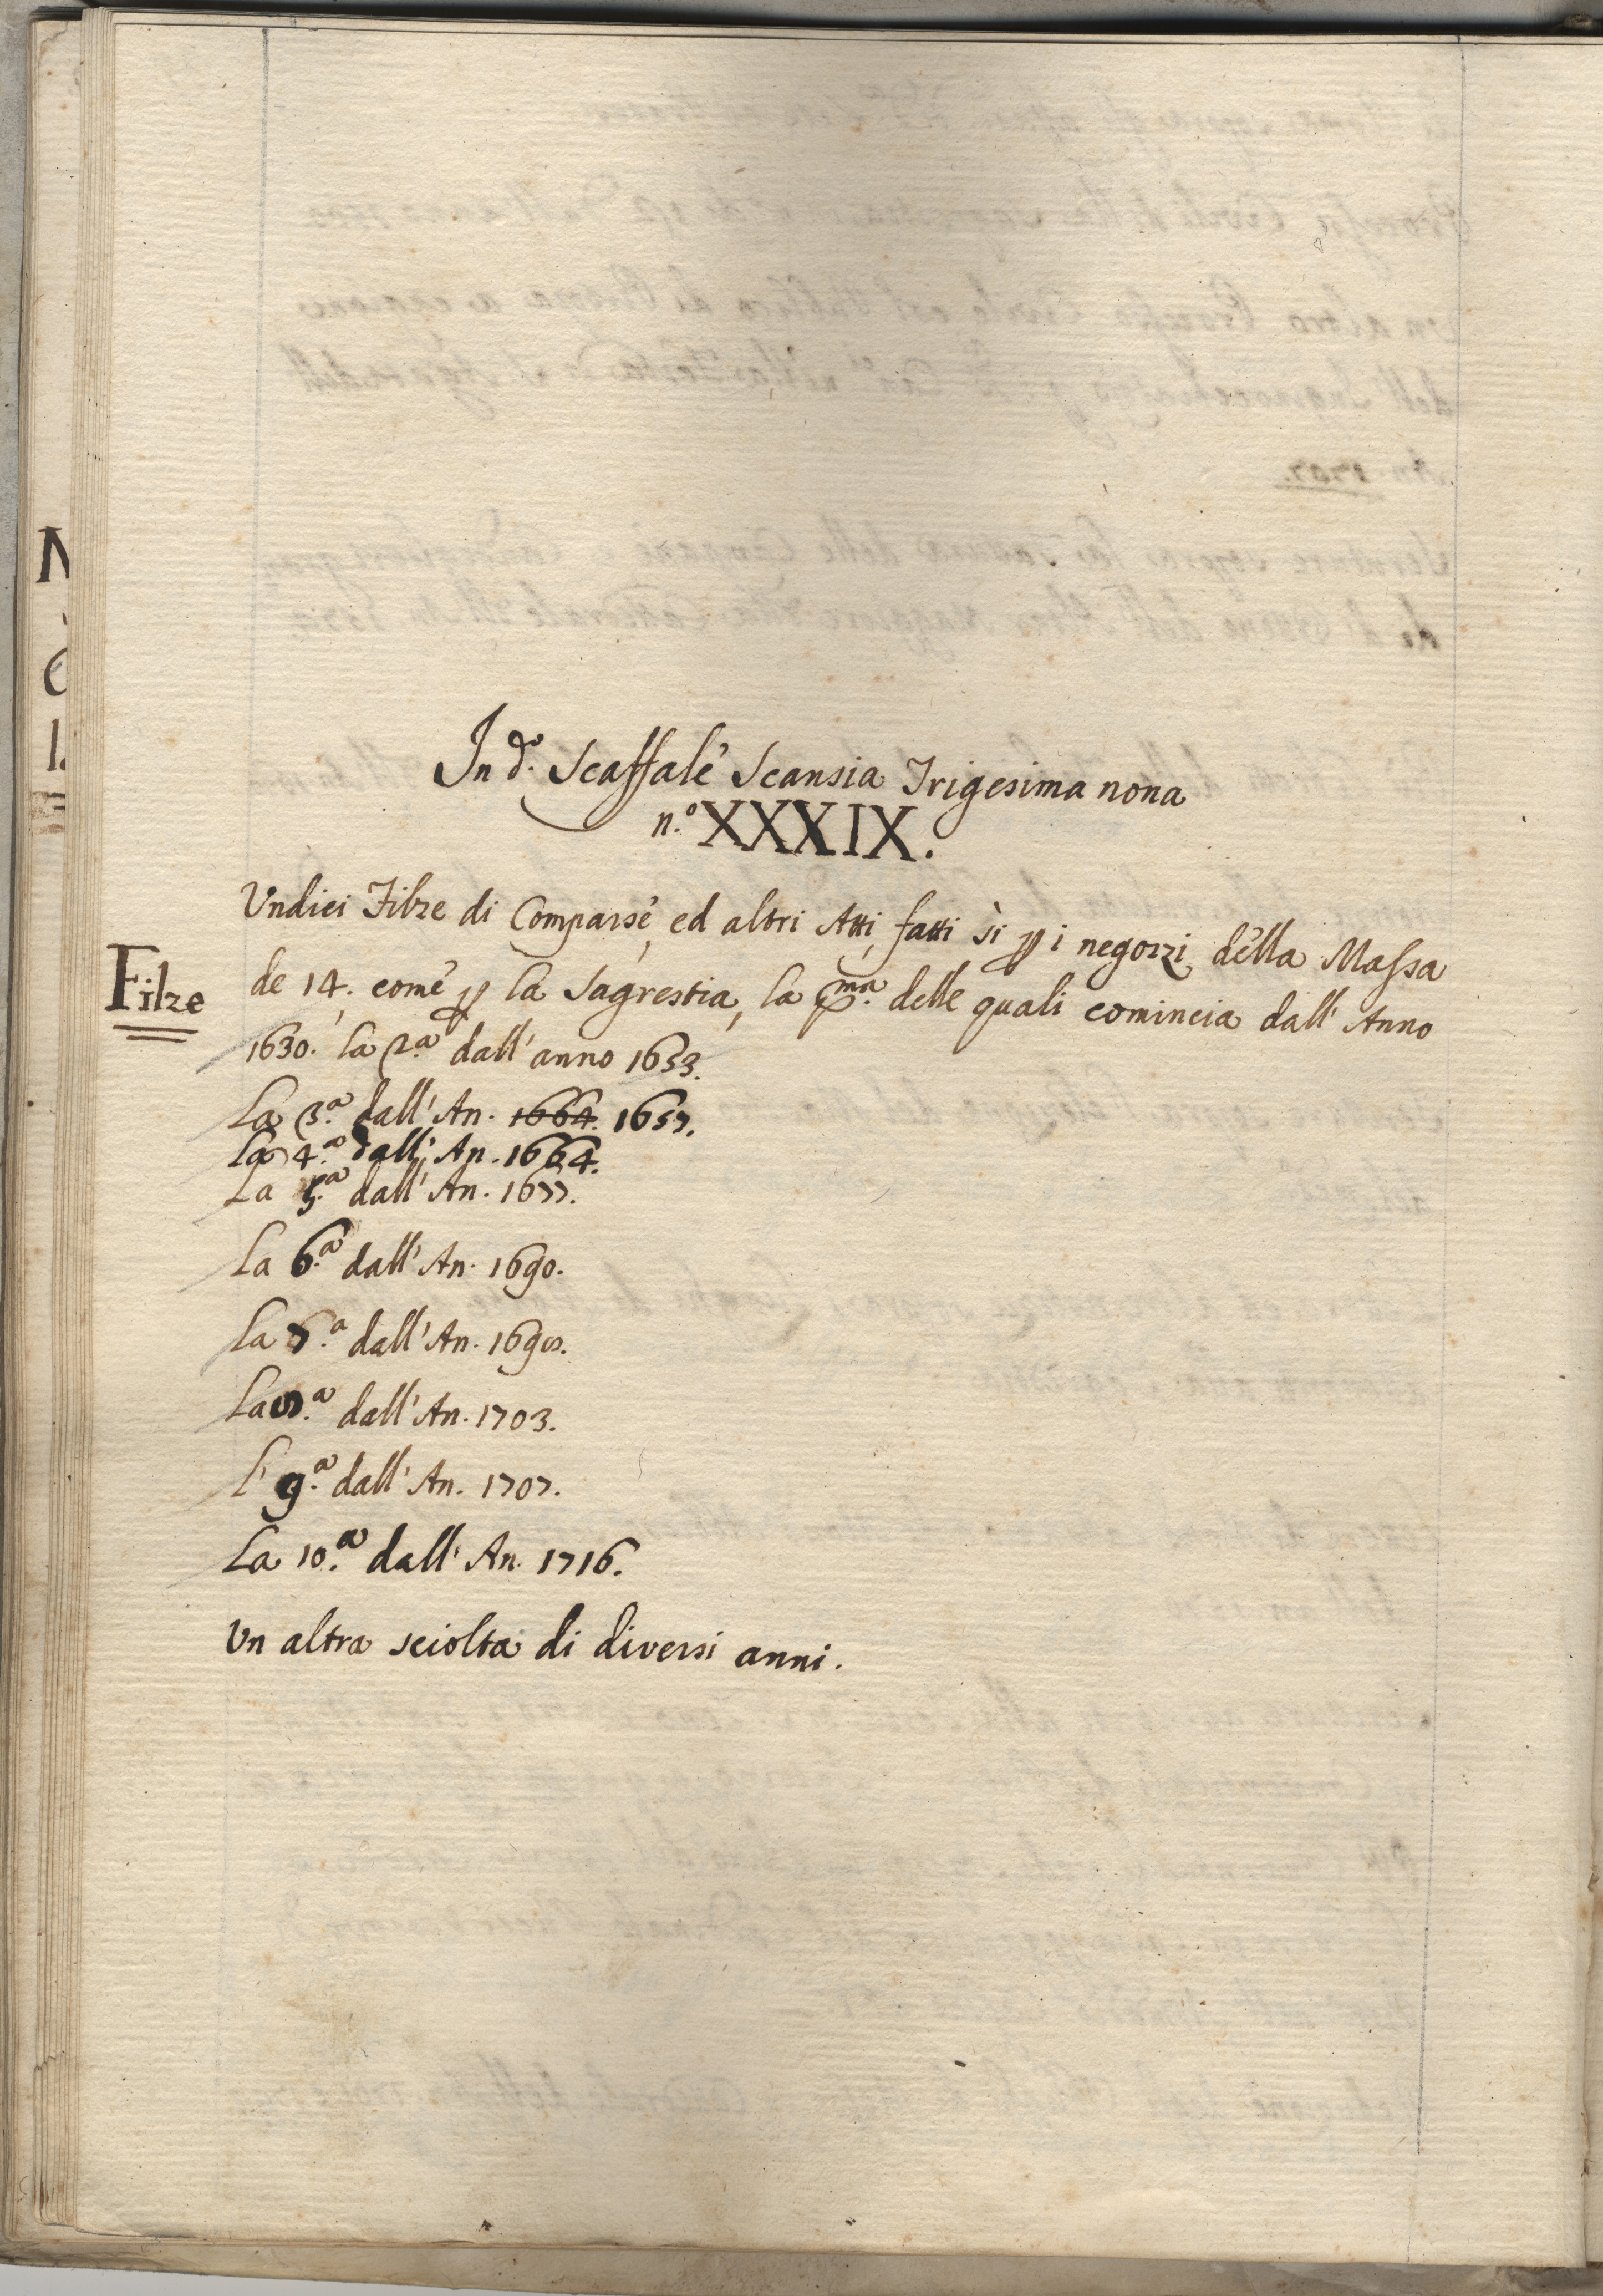 In d.º Scaffale Scansia Trigesima nona
n.º XXXIX.
Undici Filze di Comparse, ed altri Atti, fatti sì p i negozzi della Massa
Filze
de 14. come p la Sagrestia, la p.ma delle quali comincia dall' Anno
1630. la 2.a dall' anno 1653.
La 3.a dall' An. 1664. 1657.
La 4.a dall' An. 1664.
La 5.a dall' An. 1677.
La 6.a dall' An. 1690.
La 7.a dall' An. 1698.
La 8.a dall' An. 1703.
L' 9.a dall' An. 1707.
La 10.a dall' An. 1716.
Un altra sciolta di diversi anni.